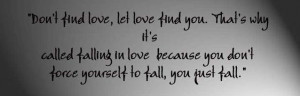 "Don't find love, let love find you. That's why
it's
called falling in love because you don't
force yourself to fall, you just fall."